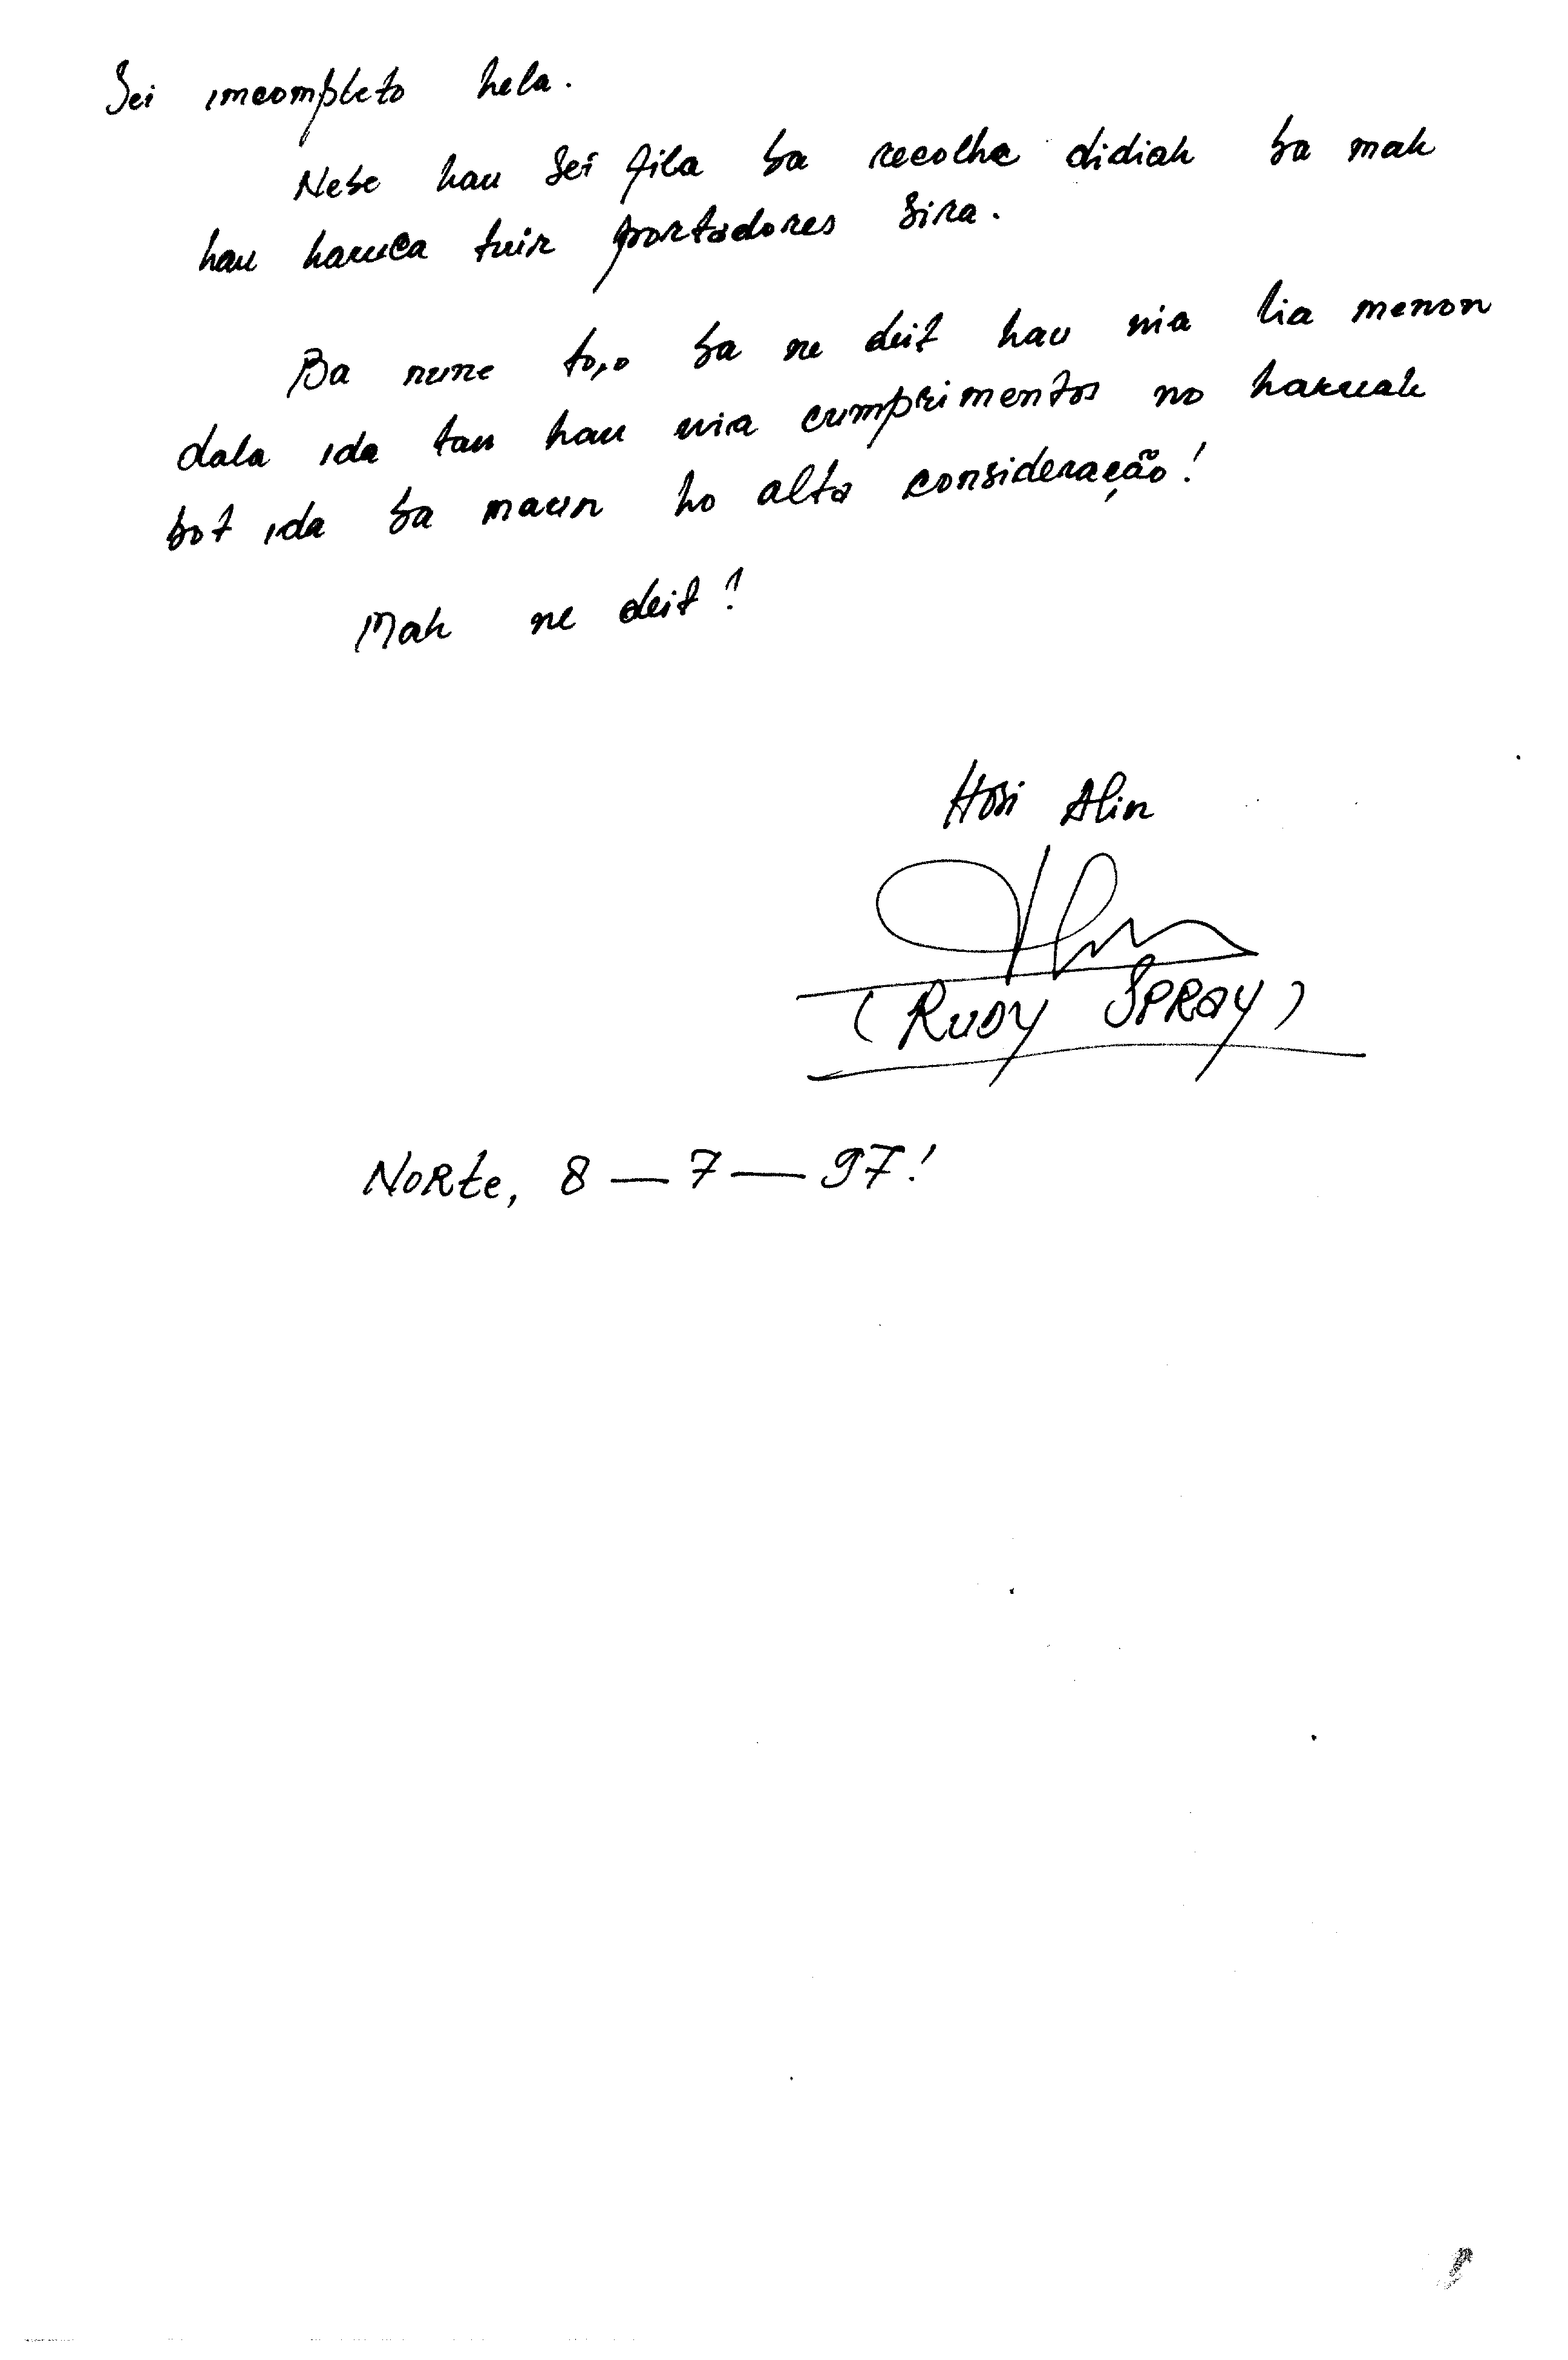 Sei incompleto hela.
Nebe hau sei fila ba recolhe didiak ba mak
hau haruca tuir portadores sira.
Ba nune to,o ba ne deit hau nia lia menon
dala ida tan hau nia cumprimentos no hakuak
bot ida ba maun ho alta consideração!
Mak ne deit!
Hosi Alin
(RUDY SPRAY)
NORte, 8 — 7 — 97!